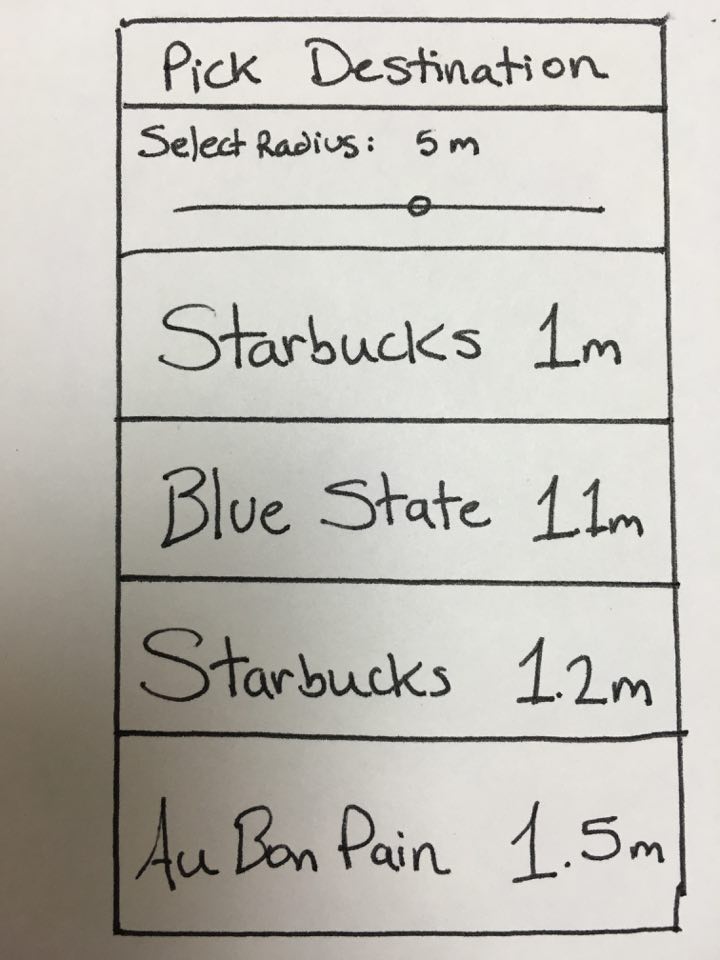 Pick Destination
Select Radius: 5 m
Starbucks 1m
Blue State 11m
Starbucks 1.2m
Au Bon Pain 1.5m